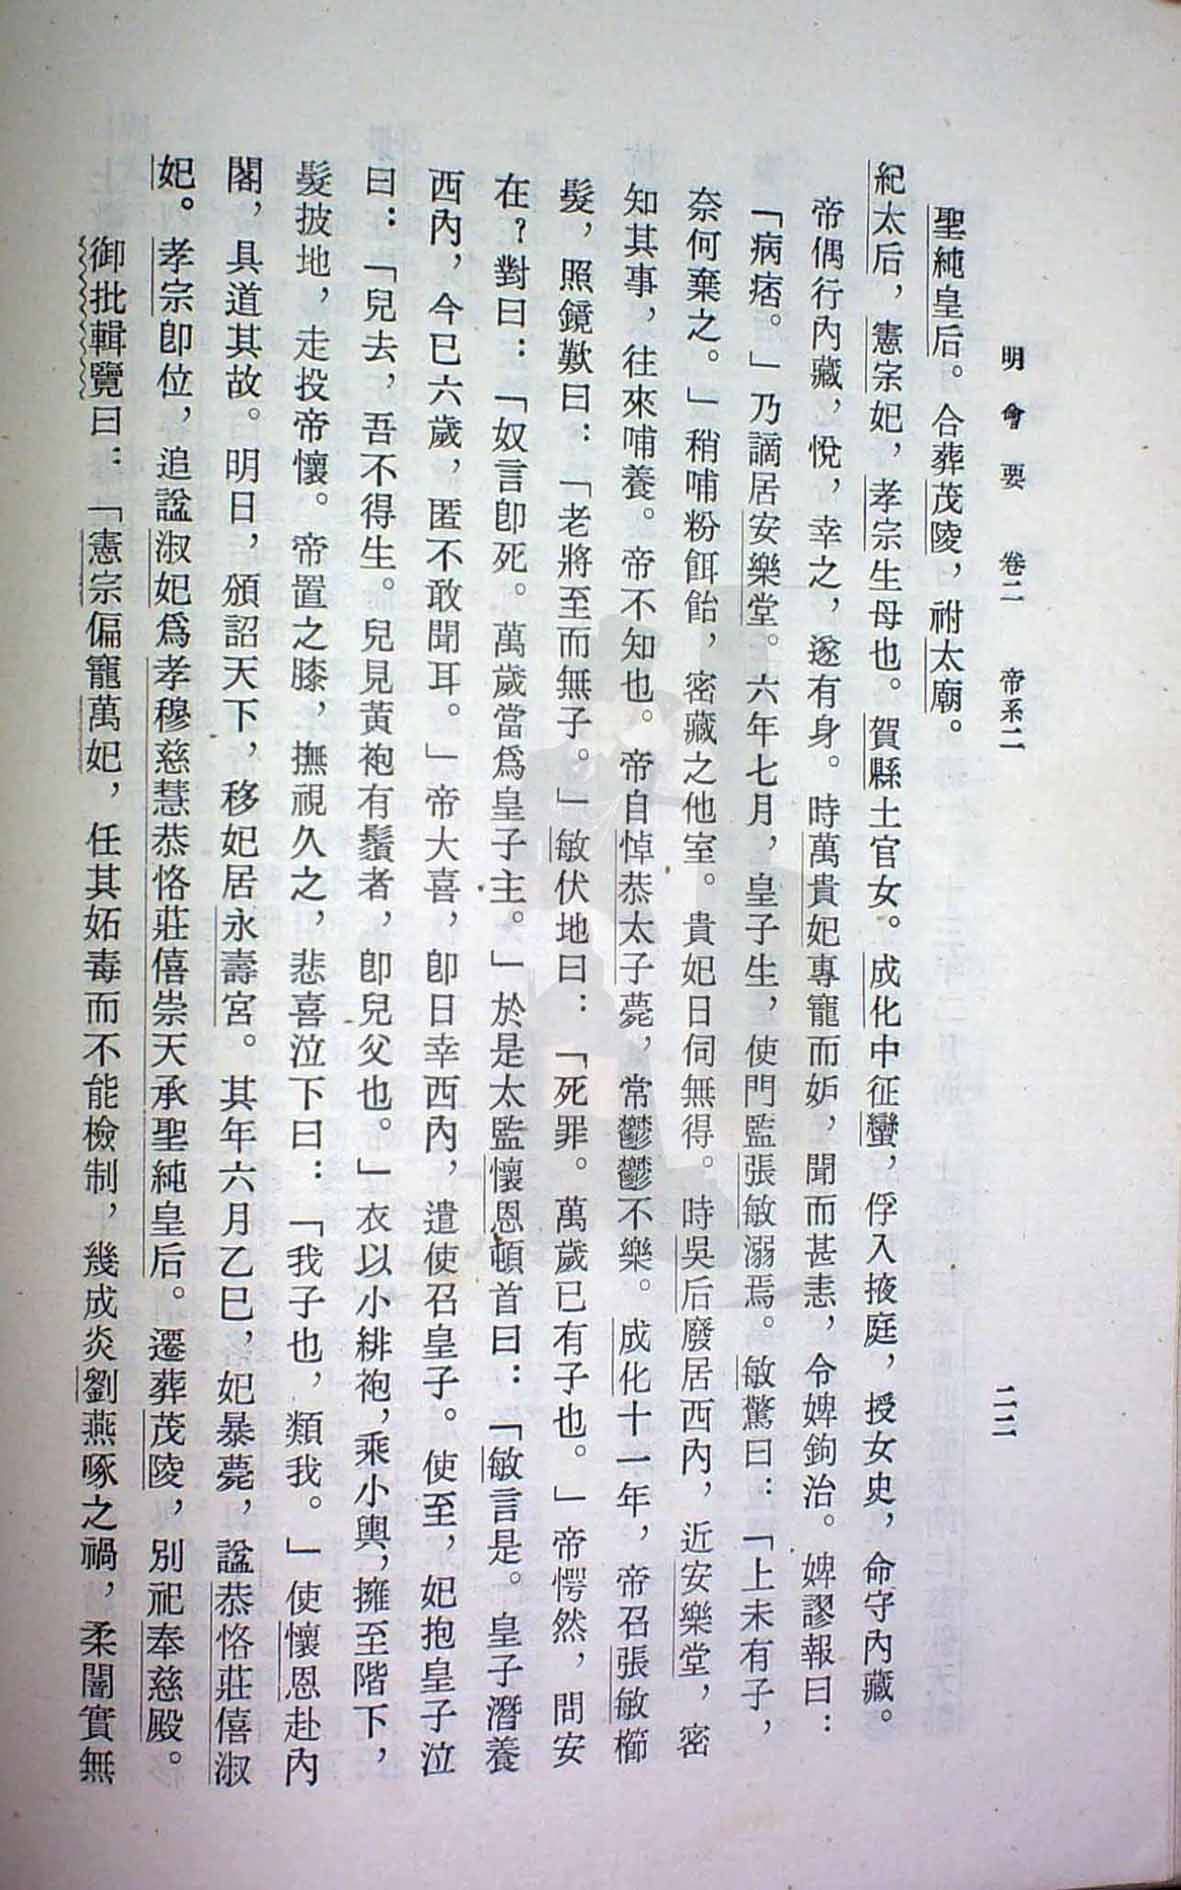 明會要　卷二　帝系二　二二
聖純皇后。合葬茂陵，祔太廟。
紀太后，憲宗妃，孝宗生母也。賀縣土官女。成化中征蠻，俘入掖庭，授女史，命守內藏。
帝偶行內藏，悅，幸之，遂有身。時萬貴妃專寵而妒，聞而甚恚，令婢鉤治。婢謬報曰：
「病痞。」乃謫居安樂堂。六年七月，皇子生，使門監張敏溺焉。敏驚曰：「上未有子，
奈何棄之。」稍哺粉餌飴，密藏之他室。貴妃日伺無得。時吳后廢居西內，近安樂堂，密
知其事，往來哺養。帝不知也。帝自悼恭太子薨，常鬱鬱不樂。成化十一年，帝召張敏櫛
髮，照鏡歎曰：「老將至而無子。」敏伏地曰：「死罪。萬歲已有子也。」帝愕然，問安
在？對曰：「奴言卽死。萬歲當爲皇子主。」於是太監懷恩頓首曰：「敏言是。皇子潛養
西內，今已六歲，匿不敢聞耳。」帝大喜，卽日幸西內，遣使召皇子。使至，妃抱皇子泣
曰：「兒去，吾不得生。兒見黃袍有鬚者，卽兒父也。」衣以小緋袍，乘小輿，擁至階下，
髮披地，走投帝懷。帝置之膝，撫視久之，悲喜泣下曰：「我子也，類我。」使懷恩赴內
閣，具道其故。明日，頒詔天下，移妃居永壽宮。其年六月乙巳，妃暴薨，諡恭恪莊僖淑
妃。孝宗卽位，追諡淑妃爲孝穆慈慧恭恪莊僖崇天承聖純皇后。遷葬茂陵，別祀奉慈殿。
御批輯覽曰：「憲宗偏寵萬妃，任其妬毒而不能檢制，幾成炎劉燕啄之禍，柔闇實無